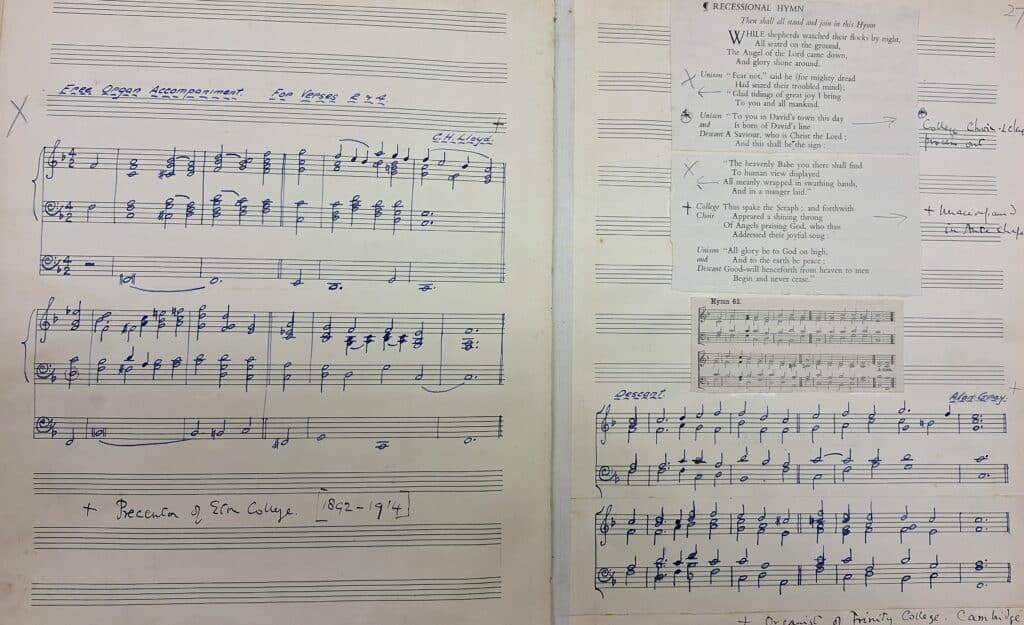 X
Free Organ Accompaniment. For Verses 2 & 4.
+
C.H. Lloyd.
+ Precentor of Eton College. [1892–1914]
27
¶ RECESSIONAL HYMN
Then shall all stand and join in this Hymn
WHILE shepherds watched their flocks by night,
All seated on the ground,
The Angel of the Lord came down,
And glory shone around.
X
Unison "Fear not," said he (for mighty dread
Had seized their troubled mind);
"Glad tidings of great joy I bring
To you and all mankind.
Unison "To you in David's town this day
and Is born of David's line
Descant A Saviour, who is Christ the Lord:
And this shall be the sign:
College Choir
process out
X
"The heavenly Babe you there shall find
To human view displayed
All meanly wrapped in swathing bands,
And in a manger laid."
+ College Thus spake the Seraph; and forthwith
Choir Appeared a shining throng
Of Angels praising God, who thus
Addressed their joyful song:
+
in Ante
Unison "All glory be to God on high,
and And to the earth be peace;
Descant Good-will henceforth from heaven to men
Begin and never cease."
Hymn 62.
Descant.
Alan Gray.
+
+ Organist of Trinity College. Cambridge